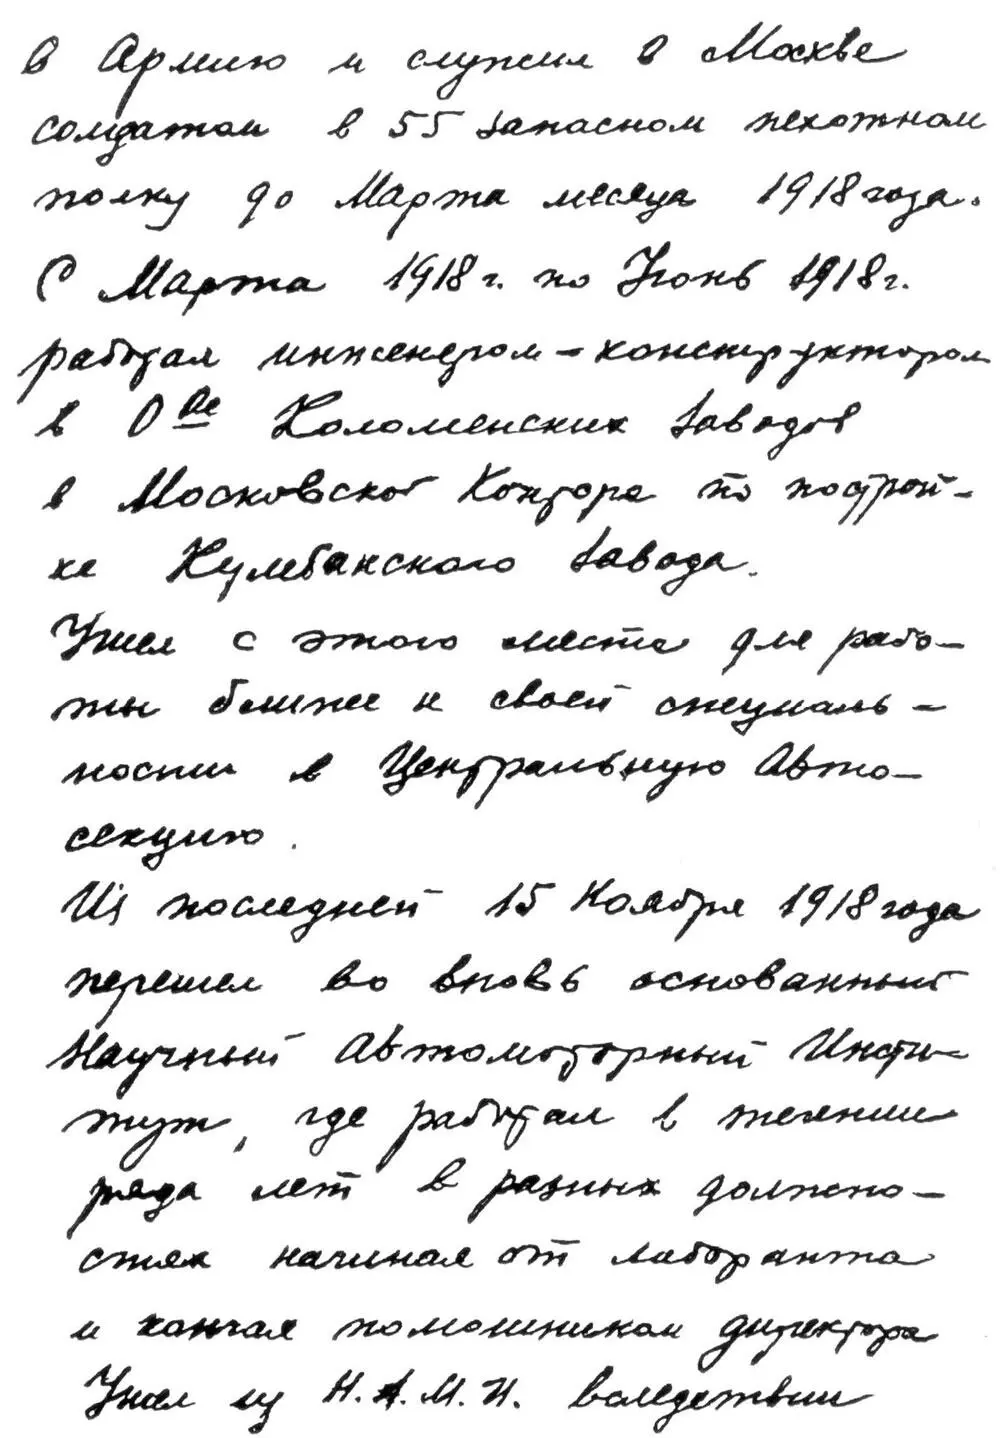 в Армию и служил в Москве
солдатом в 55 запасном пехотном
полку до Марта месяца 1918 года.
С Марта 1918 г. по Июнь 1918 г.
работал инженером-конструктором
в О-ве Коломенских заводов
в Московской Конторе по построй-
ке Кулебакского завода.
Ушел с этого места для рабо-
ты ближе к своей специаль-
ности в Центральную Авто-
секцию.
Из последней 15 Ноября 1918 года
перешел во вновь основанный
Научный Автомоторный Инсти-
тут, где работал в течении
ряда лет в разных должно-
стях начиная от лаборанта
и кончая помощником директора
Ушел из Н.А.М.И. вследствии